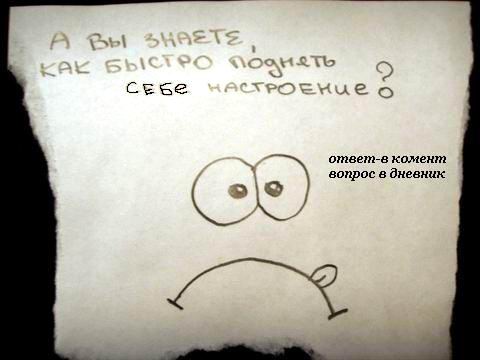 А ВЫ ЗНАЕТЕ,
КАК БЫСТРО ПОДНЯТЬ
СЕБЕ НАСТРОЕНИЕ?
ответ-в комент
вопрос в дневник